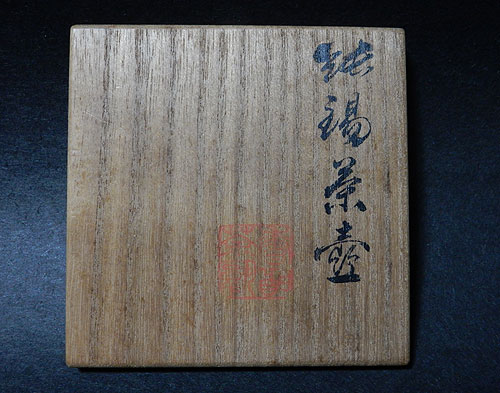 純錫茶壺